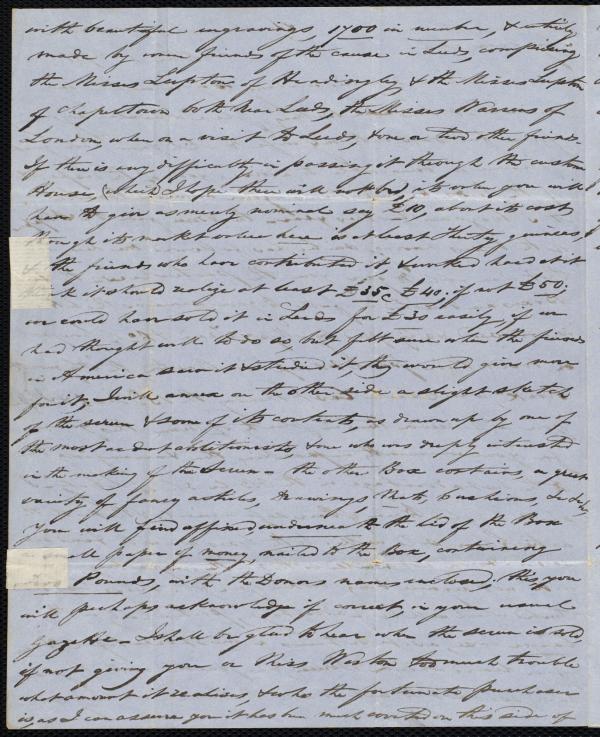 with beautiful engravings, 1700 in number, & entirely
made by some friends of the cause in Leeds, comprising
the Misses Lupton of Headingley, & the Misses Lupton
of Chapeltown both near Leeds, the Misses Warrens of
London, when on a visit to Leeds, & one or two other friends.
If there is any difficulty in passing it through the custom
House (which I hope there will not be), its value you will
have to give as merely nominal say £10, about its cost,
though its market value here is at least thirty guineas,
& the friends who have contributed it, & worked hard at it
think it should realize at least £35, £40, if not £50;
we could have sold it in Leeds for £30 easily, if we
had thought well to do so, but felt sure when the friends
in America saw it & studied it, they would give more
for it; I will annex on the other side a slight sketch
of the screen & some of its contents, as drawn up by one of
the most ardent abolitionists, & one who was deeply interested
in the making of the Screen - the other Box contains, a great
variety of fancy articles, Drawings, Nets, Cushions, &c &c,
you will find affixed underneath the lid of the Box
small paper of money, nailed to the Box, containing
Pounds, with the Donors names enclosed, this you
will perhaps acknowledge if correct, in your usual
Gazette - I shall be glad to hear when the screen is sold,
if not giving you or Miss Weston too much trouble
what amount it realises, & who the fortunate purchaser
is, as I can assure you it has been much coveted on this side of